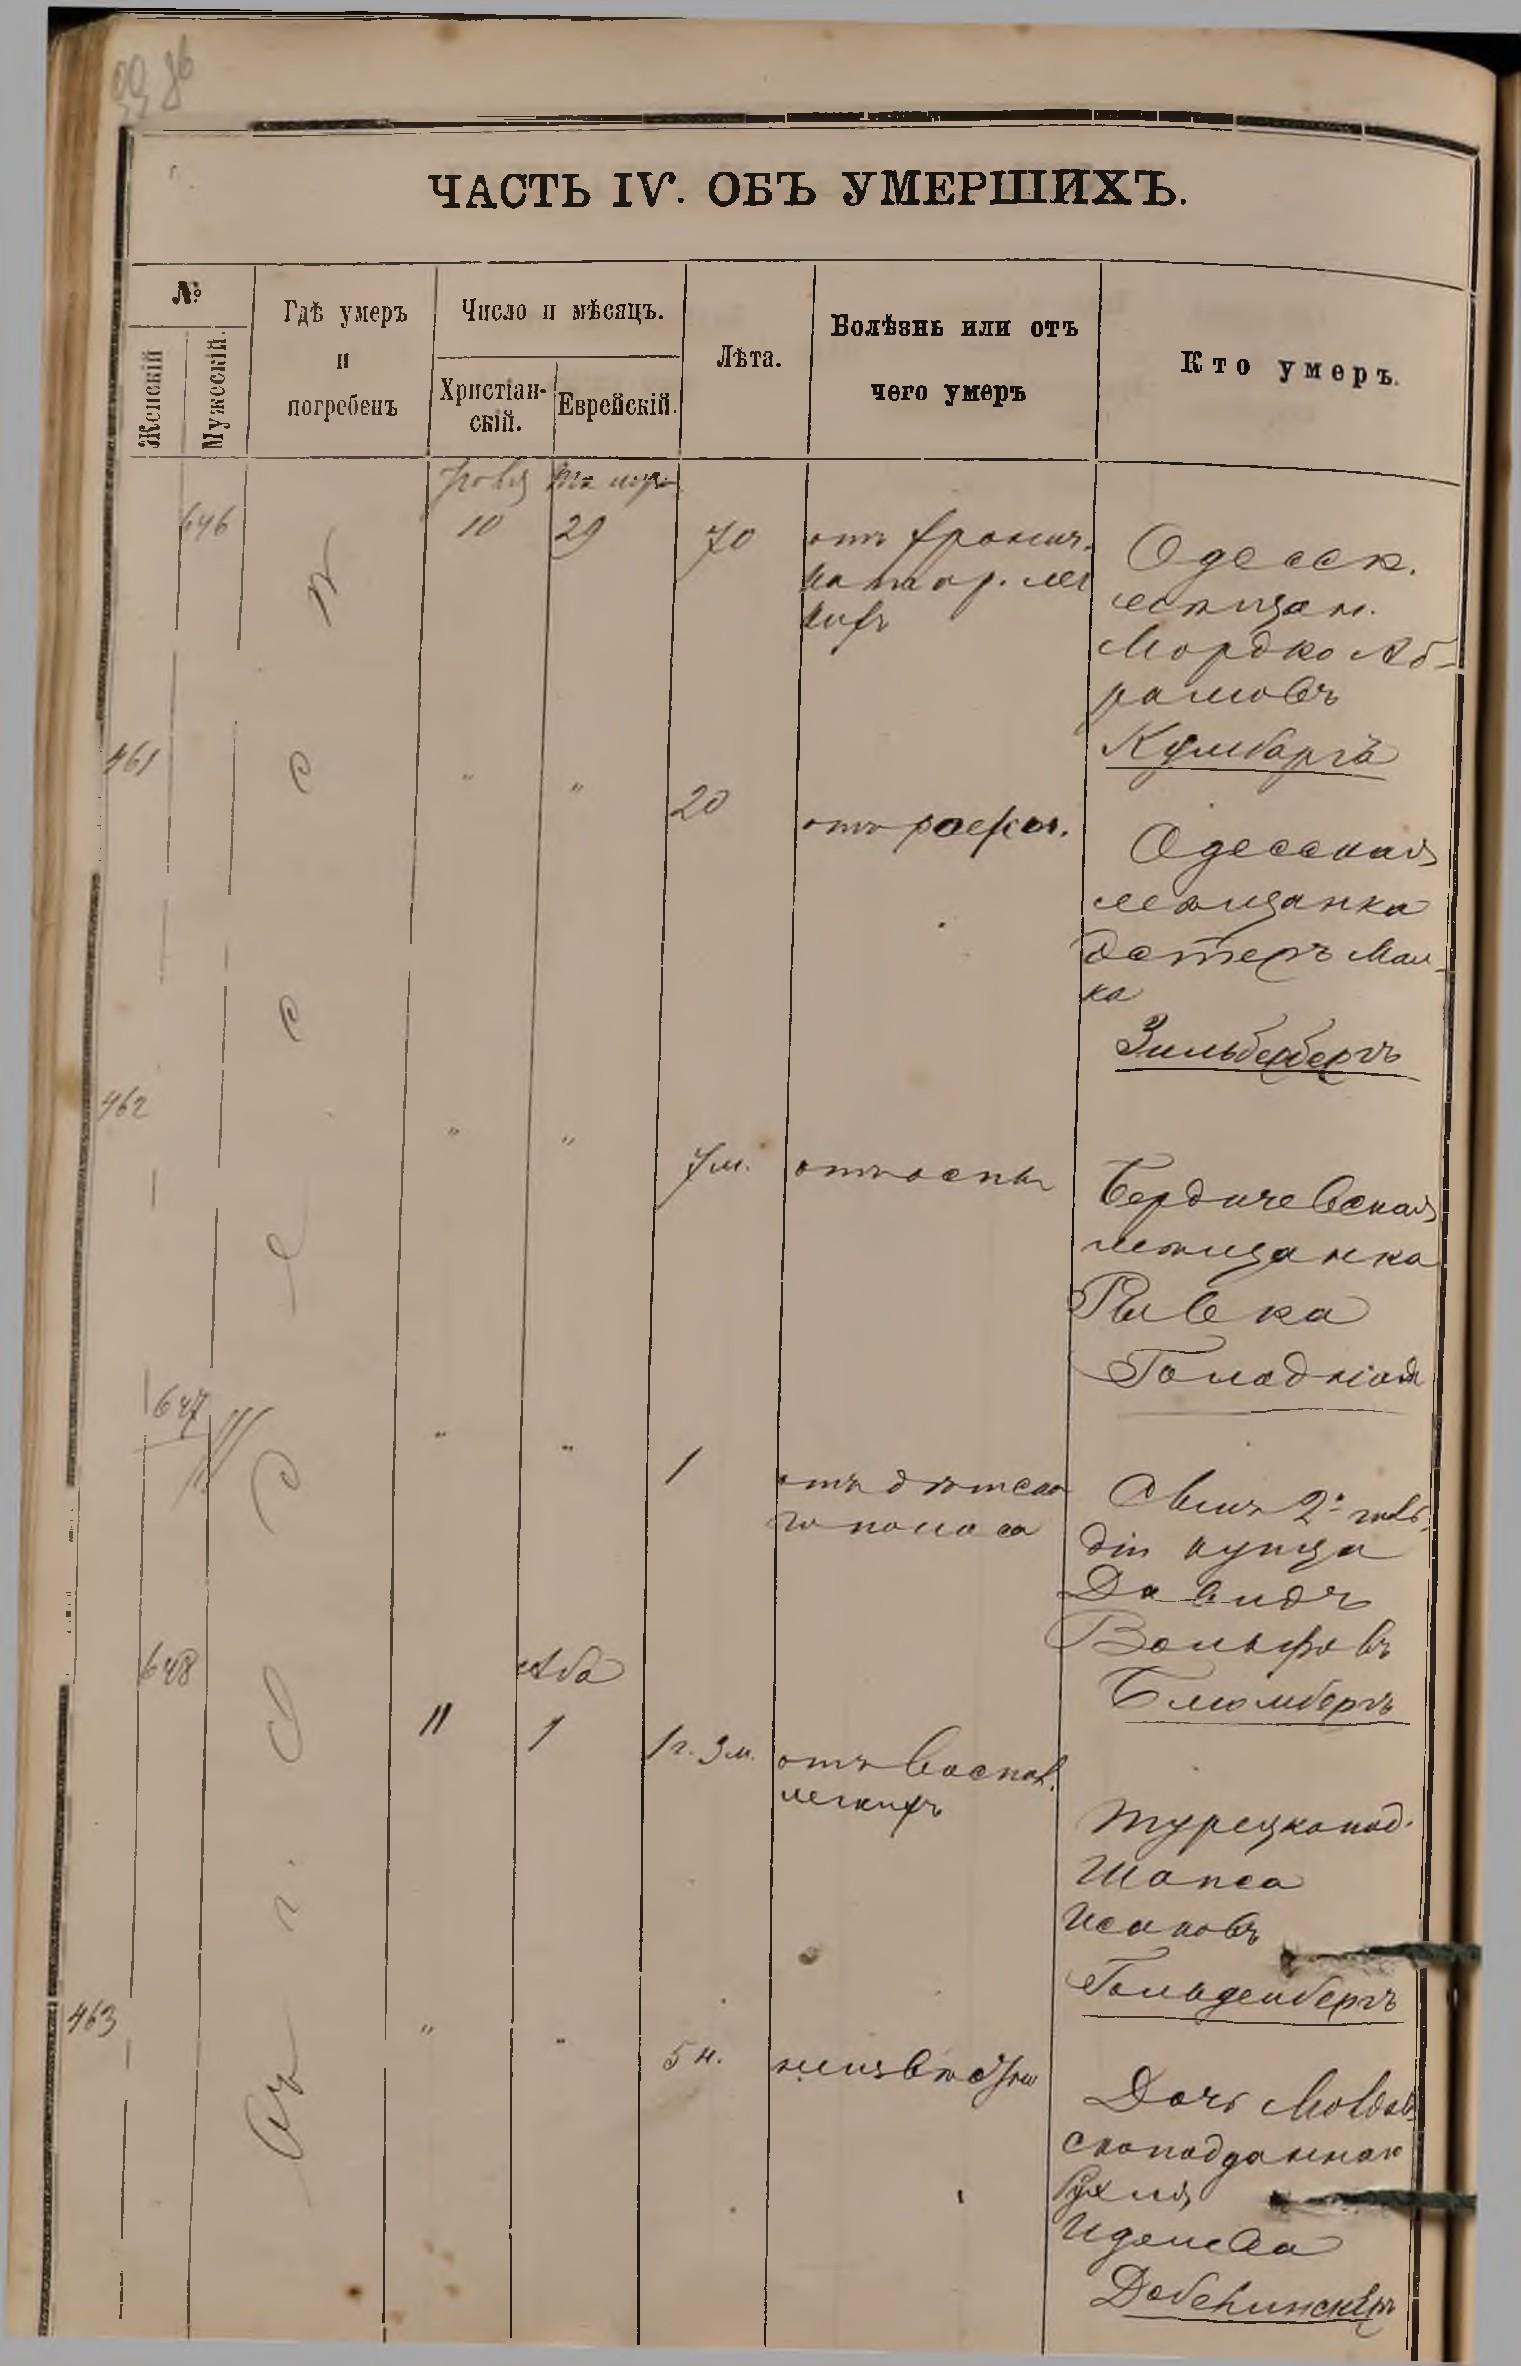 ЧАСТЬ IV. ОБЪ УМЕРШИХЪ.
№
Женскій
Мужескій.
Гдѣ умеръ
и
погребенъ
Число и мѣсяцъ.
Христіан-
скій.
Еврейскій.
Лѣта.
Болѣзнь или отъ
чего умеръ
Кто умеръ.
646
10
29
70
отъ хронич.
катар. лег
кихъ
Одесск.
мѣщан.
Мордко Аб-
рамовъ
Кумбаргъ
461
"
"
20
отъ
Одесская
мѣщанка
Эстеръ Мал-
ка
Зильбербергъ
462
"
"
7 м.
отъ оспы
Бердичевская
мѣщанка
Ривка
647
"
"
1
отъ дѣтска
го поноса
Сынъ 2й гиль-
діи купца
Давидъ
Вольфовъ
Блюмбергъ
648
Аба
11
1
1 г. 3 м.
отъ воспал.
легкихъ
Турецкопод.
Шапса
Исаковъ
Гольденбергъ
463
"
"
5 н.
неизвѣстно
Дочь Молдав
скоподданнаго
Рухля
Въ г. Одессѣ